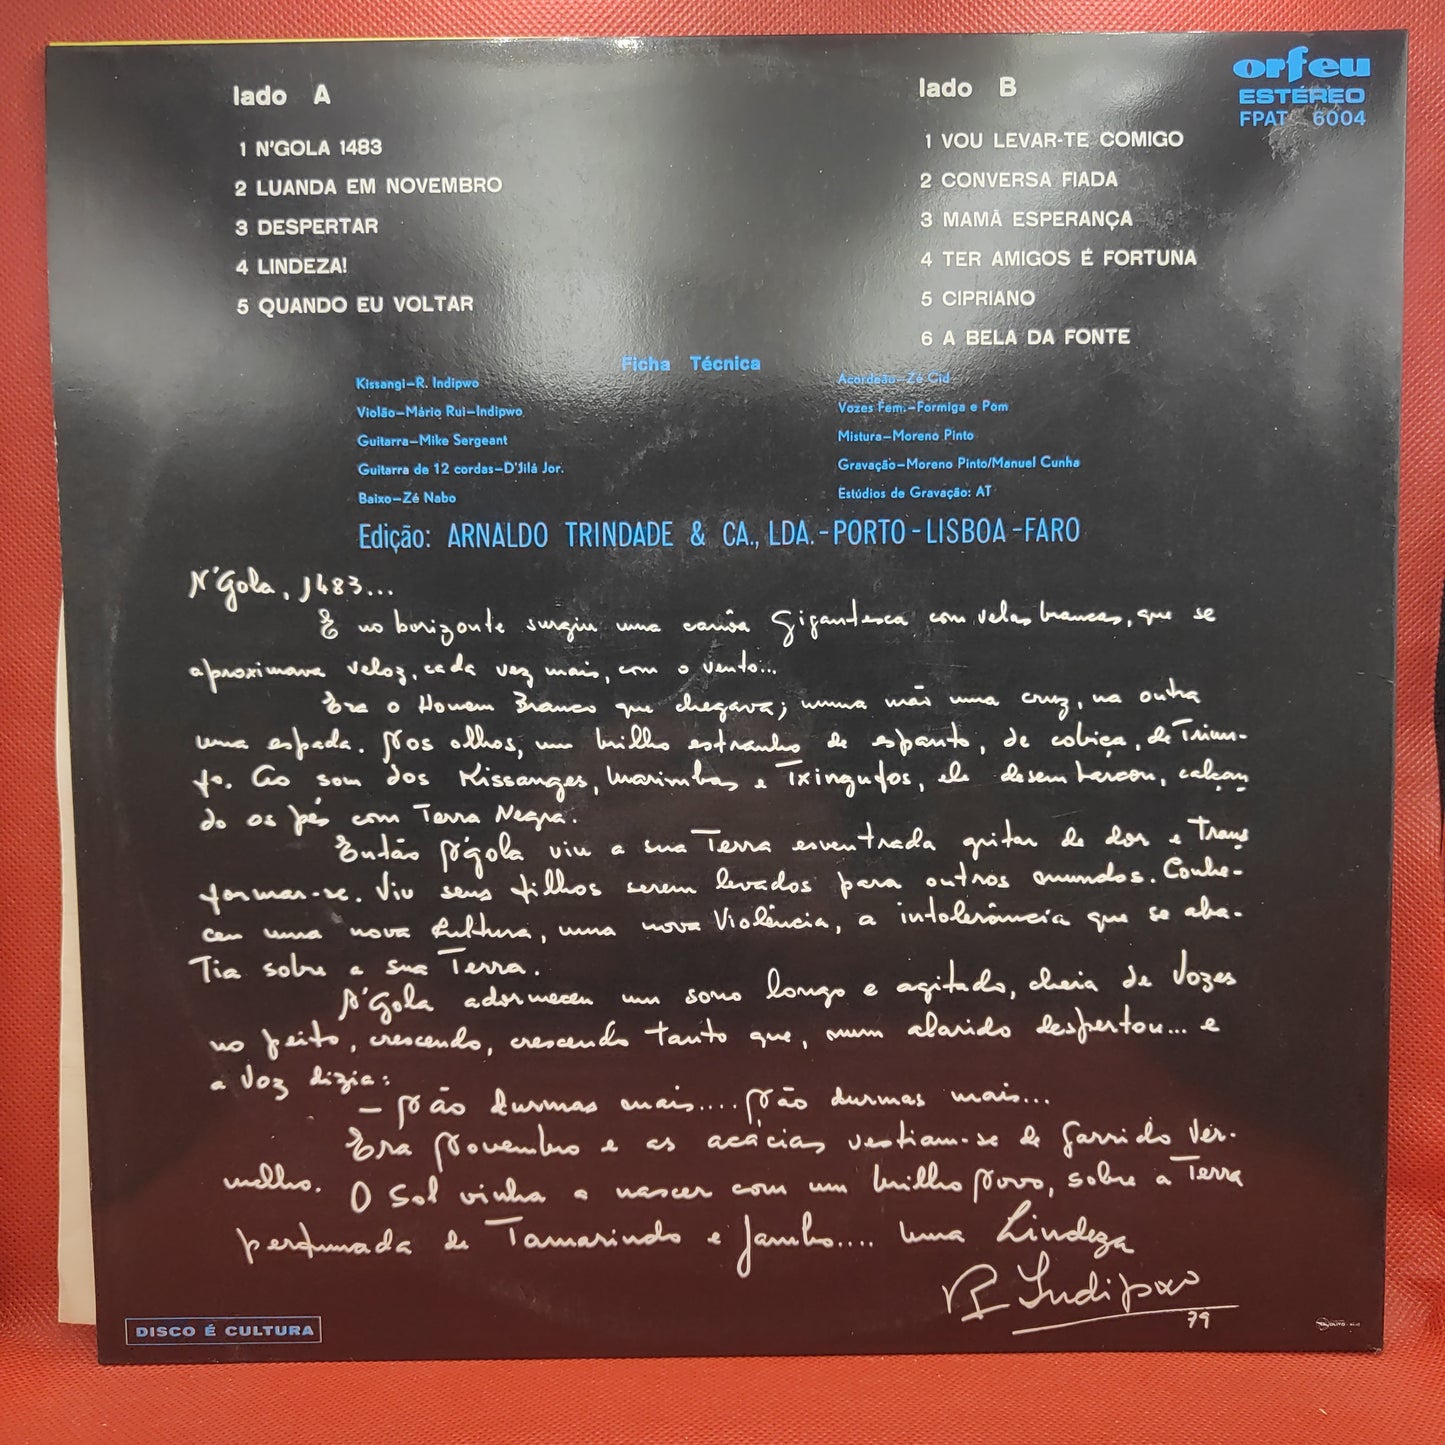 orfeu
ESTÉREO
FPAT 6004
lado A
1 N'GOLA 1483
2 LUANDA EM NOVEMBRO
3 DESPERTAR
4 LINDEZA!
5 QUANDO EU VOLTAR
lado B
1 VOU LEVAR-TE COMIGO
2 CONVERSA FIADA
3 MAMÃ ESPERANÇA
4 TER AMIGOS É FORTUNA
5 CIPRIANO
6 A BELA DA FONTE
Ficha Técnica
Kissangi-R. Indipwo
Violão-Mário Rui-Indipwo
Guitarra-Mike Sergeant
Guitarra de 12 cordas-D'Jilá Jor.
Baixo-Zé Nabo
Acordeão-Zé Cid
Vozes Fem.-Formiga e Pom
Mistura-Moreno Pinto
Gravação-Moreno Pinto/Manuel Cunha
Estúdios de Gravação: AT
Edição: ARNALDO TRINDADE & CA., LDA.-PORTO-LISBOA-FARO
N'Gola, 1483...
E no horizonte surgiu uma canôa gigantesca com velas brancas, que se
aproximava veloz, cada vez mais, com o vento...
Era o Homem Branco que chegava; numa mão uma cruz, na outra
uma espada. Nos olhos, um brilho estranho de espanto, de cobiça, de Triun-
fo. Ao som dos Kissanges, Marimbas e Txingufos, ele desembarcou, calçan
do os pés com Terra Negra.
Então N'gola viu a sua Terra esventrada gritar de dor e Trans
formar-se. Viu seus filhos serem levados para outros mundos. Conhe-
ceu uma nova Cultura, uma nova Violência, a intolerância que se aba-
Tia sobre a sua Terra.
N'Gola adormeceu um sono longo e agitado, cheia de Vozes
no peito, crescendo, crescendo tanto que, num alarido despertou... e
a Voz dizia:
- Não durmas mais.... Não durmas mais...
Era Novembro e as acácias vestiam-se de garrido Ver-
melho. O Sol vinha a nascer com um brilho Novo, sobre a Terra
perfumada de Tamarindo e Jambo.... Uma Lindeza
R Indipwo
79
DISCO É CULTURA